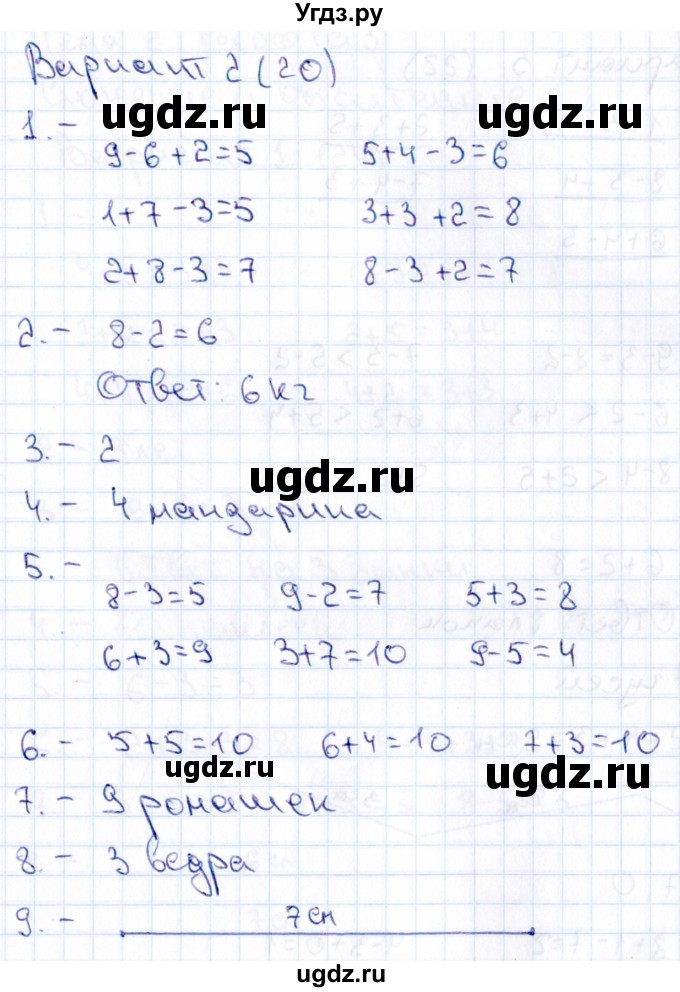 Угдз.ру
Вариант 2 (20)
ugdz.ru
1. -
9-6+2=5 5+4-3=6
1+7-3=5 3+3+2=8
ugdz.ru
2+8-3=7 8-3+2=7
2. - 8-2=6
Ответ: 6 кг
3. - 2
ugdz.ru
4. - 4 мандарина
5. -
8-3=5 9-2=7 5+3=8
6+3=9 3+7=10 9-5=4
6. - 5+5=10 6+4=10 7+3=10
ugdz.ru ugdz.ru
7. - 9 ромашек
8. - 3 ведра
9. - 7 см
ugdz.ru